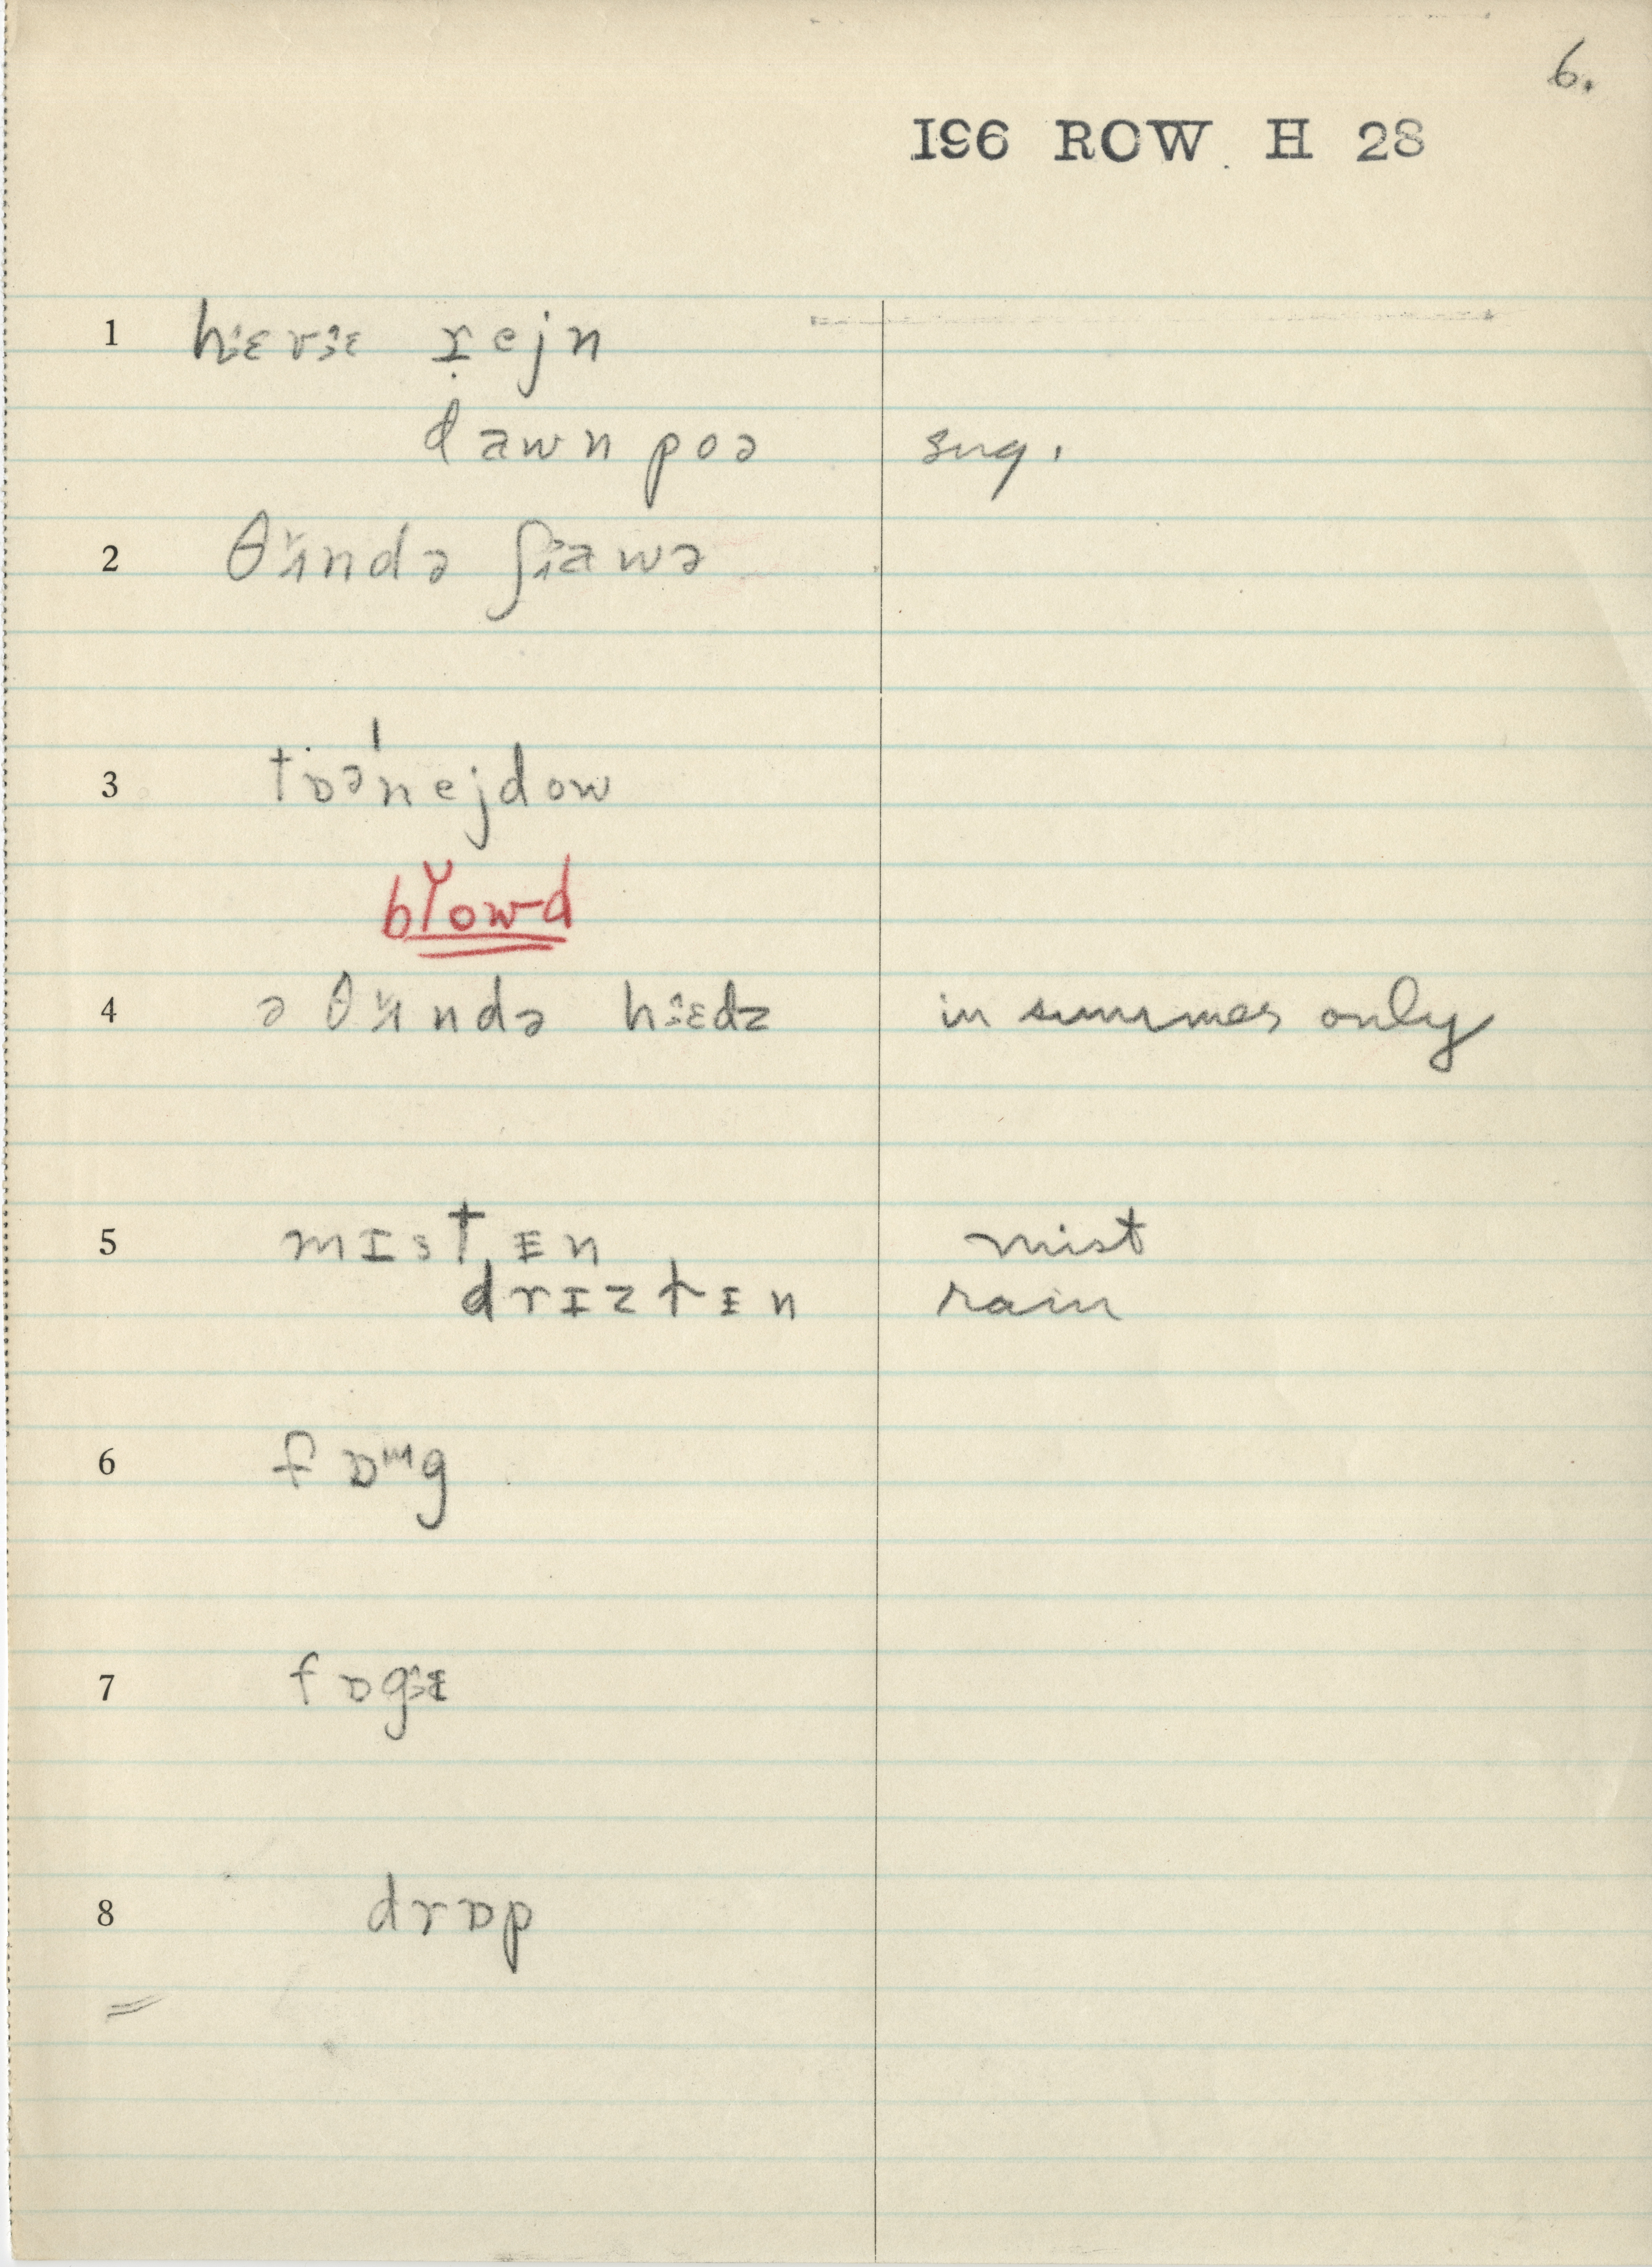 6.
196 ROW H 28
1 hɛvɪ rejn
dawnpoə sug.
2 θʌndə ʃawə
3 tɒəˈnejdow
blowd
4 ə θʌndə hɛdz in summer only
5 mɪstɪn mist
drɪzlɪn rain
6 fɒᵚg
7 fɒgɪ
8 drɒp